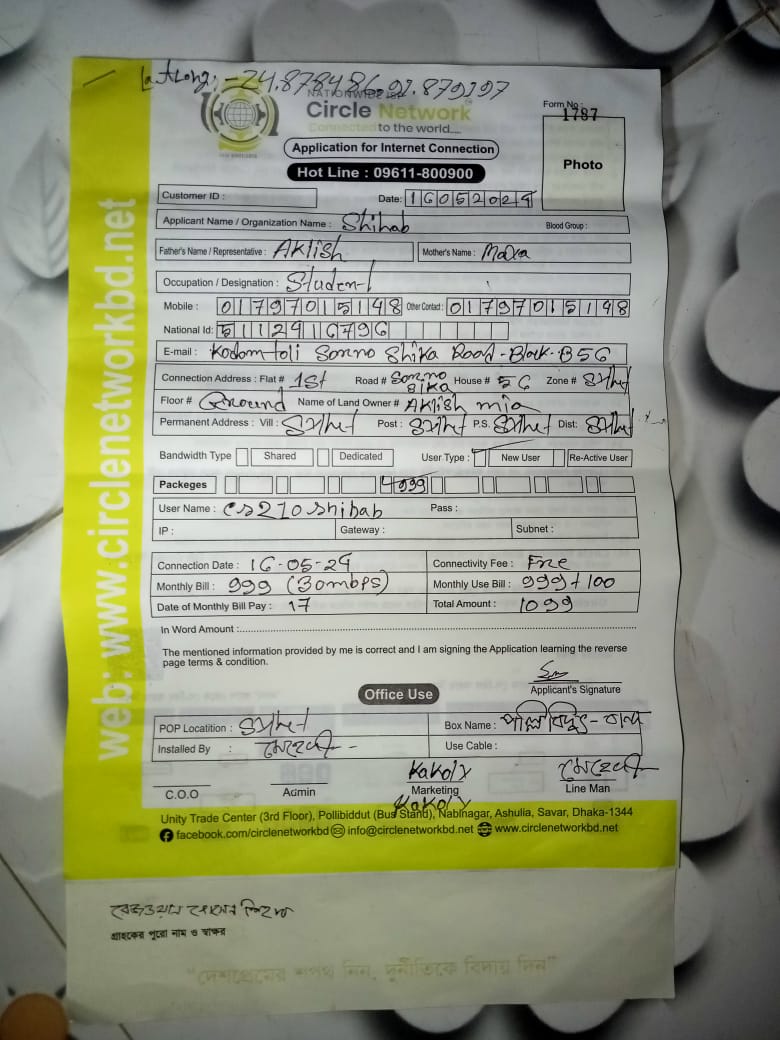 Lat Long: - 24.878486, 91.879197
NATIONWIDE ISP
Circle Network
Connected to the world....
Form No : 1787
Application for Internet Connection
Photo
Hot Line : 09611-800900
Customer ID :
Date: 16052024
Applicant Name / Organization Name : Shihab
Blood Group :
Father's Name / Representative : Aklish
Mother's Name :
Occupation / Designation : Student
Mobile : 01797015148 Other Contact : 01797015148
National Id: 5112416796
E-mail : Kodomtoli Sorno Shika Road-Block-B 56
Connection Address : Flat # 1st Road # Sorno sika House # 56 Zone # Sylhet
Floor # Ground Name of Land Owner # Aklish mia
Permanent Address : Vill : Sylhet Post : Sylhet P.S. Sylhet Dist: Sylhet
Bandwidth Type Shared Dedicated User Type : New User Re-Active User
Packeges 999
User Name : cs210shihab Pass :
IP : Gateway : Subnet :
Connection Date : 16-05-24 Connectivity Fee : Free
Monthly Bill : 999 (30mbps) Monthly Use Bill : 999+100
Date of Monthly Bill Pay : 17 Total Amount : 1099
In Word Amount :
The mentioned information provided by me is correct and I am signing the Application learning the reverse
page terms & condition.
Applicant's Signature
Office Use
POP Locatition : Sylhet Box Name : পল্লী বিদ্যুৎ -
Installed By : মেহেদী Use Cable :
C.O.O Admin Kakoly Marketing Kakoly মেহেদী Line Man
Unity Trade Center (3rd Floor), Pollibiddut (Bus Stand), Nabinagar, Ashulia, Savar, Dhaka-1344
facebook.com/circlenetworkbd info@circlenetworkbd.net www.circlenetworkbd.net
web: www.circlenetworkbd.net
গ্রাহকের পুরো নাম ও স্বাক্ষর
“দেশপ্রেমের শপথ নিন, দুর্নীতিকে বিদায় দিন”